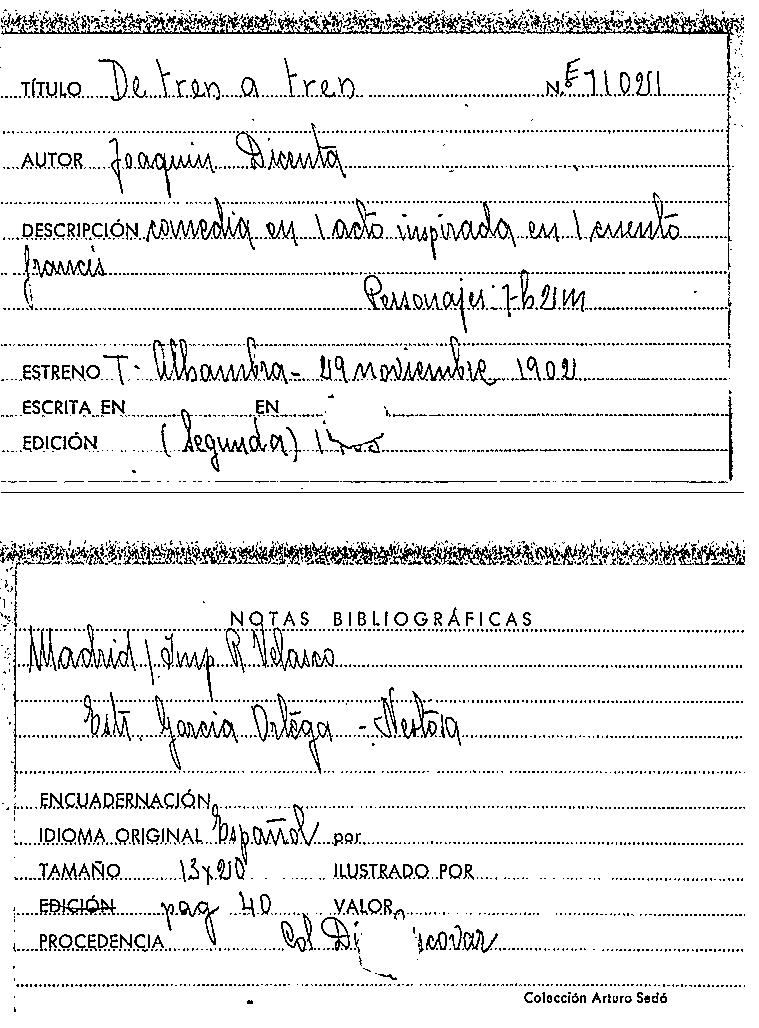 TÍTULO De tren a tren N.º E 71021
AUTOR Joaquin Dicenta
DESCRIPCIÓN comedia en 1 acto inspirada en 1 cuento
francés
Personajes: 7 h 2 m
ESTRENO T. Alhambra - 29 noviembre 1902
ESCRITA EN EN
EDICIÓN (Segunda)
NOTAS BIBLIOGRÁFICAS
Madrid / Imp R Velasco
Estr. Garcia Ortega - Nestosa
ENCUADERNACIÓN
IDIOMA ORIGINAL Español por
TAMAÑO 13x20 ILUSTRADO POR
EDICIÓN pag 40 VALOR
PROCEDENCIA Col
Colección Arturo Sedó